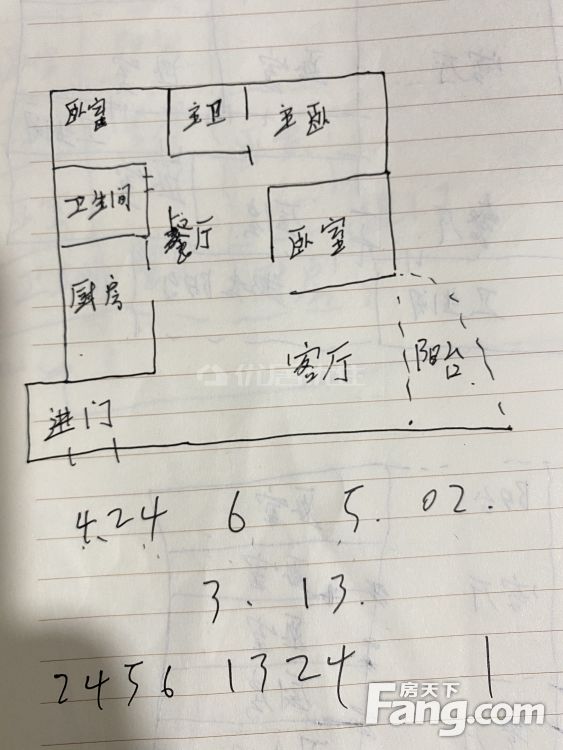 卧室 主卫 主卧
卫生间 餐厅 卧室
厨房
客厅 阳台
进门
424 6 5.02.
3.13.
2456 1324 1
房天下
Fang.com